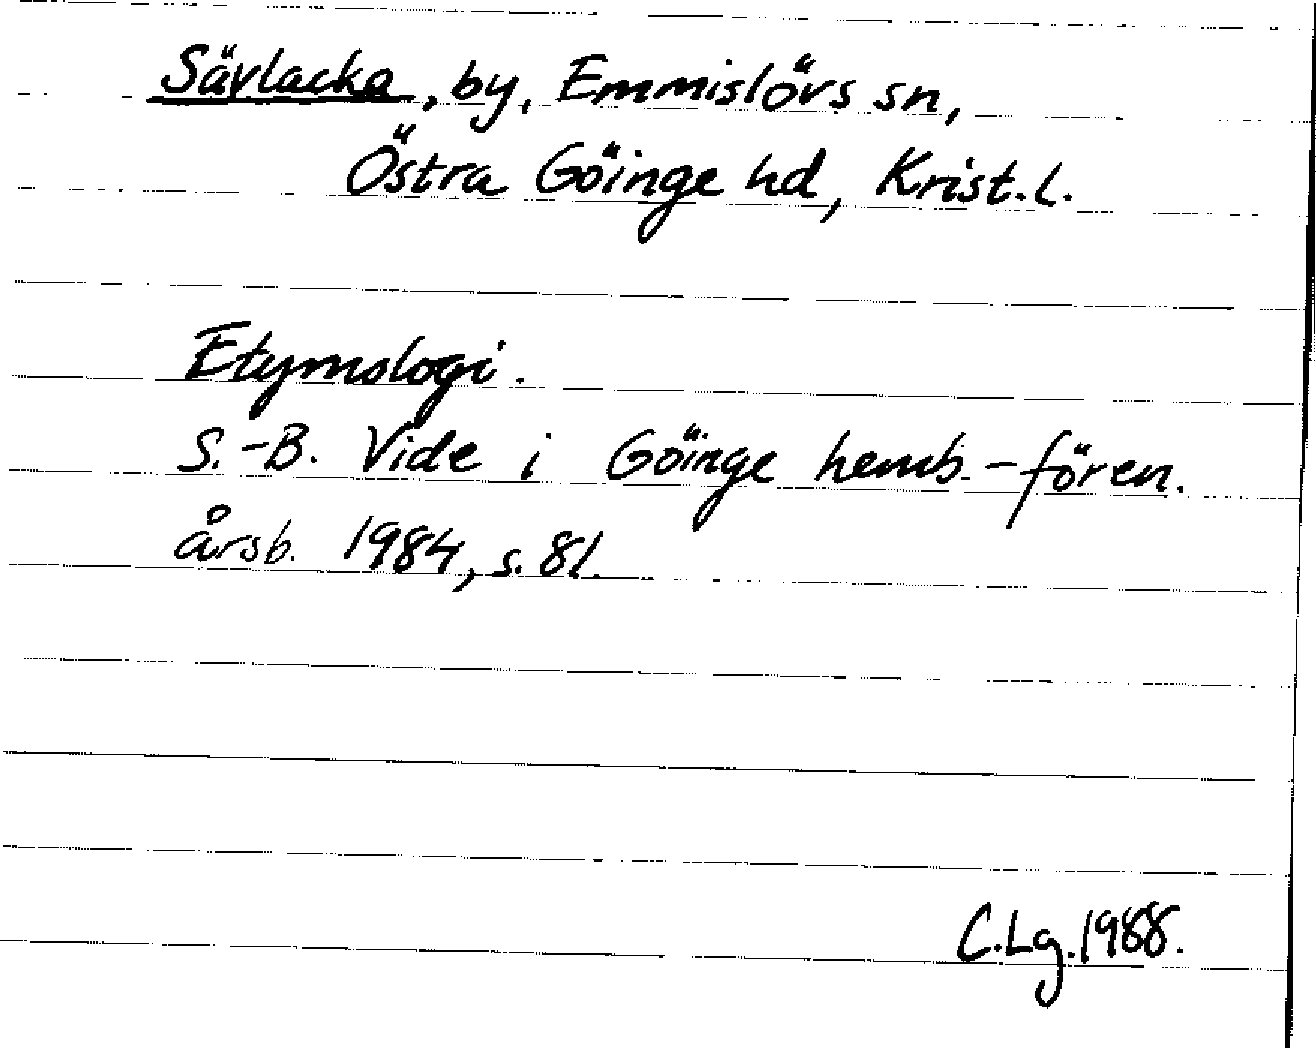 Sävlacka, by, Emmislövs sn,
Östra Göinge hd, Krist.l.
Etymologi.
S.-B. Vide i Göinge hemb.-fören.
årsb. 1984, s. 81.
C.Lg.1988.